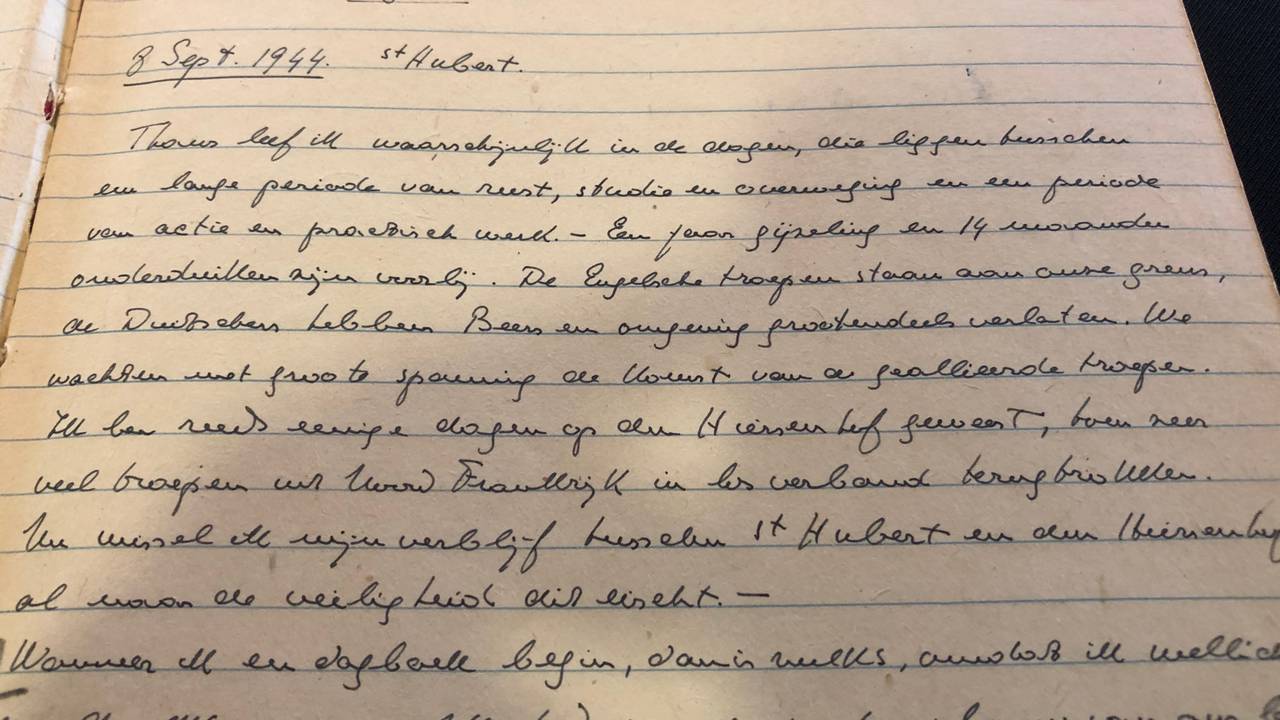 8 Sept. 1944. St Hubert.
Thans leef ik waarschijnlijk in de dagen, die liggen tusschen
een lange periode van rust, studie en overweging en een periode
van actie en practisch werk. – Een jaar gijzeling en 14 maanden
onderduiken zijn voorbij. De Engelsche troepen staan aan onze grens,
de Duitschers hebben Beers en omgeving grootendeels verlaten. We
wachten met groote spanning de komst van de geallieerde troepen.
Ik ben reeds eenige dagen op den Hiersenhof geweest, toen zeer
veel troepen uit Noord Frankrijk in los verband terugtrokken.
Nu wissel ik mijn verblijf tusschen St Hubert en den
al naar de veiligheid dit eischt. –
Wanneer ik een dagboek begin, dan is zulks, omdat ik